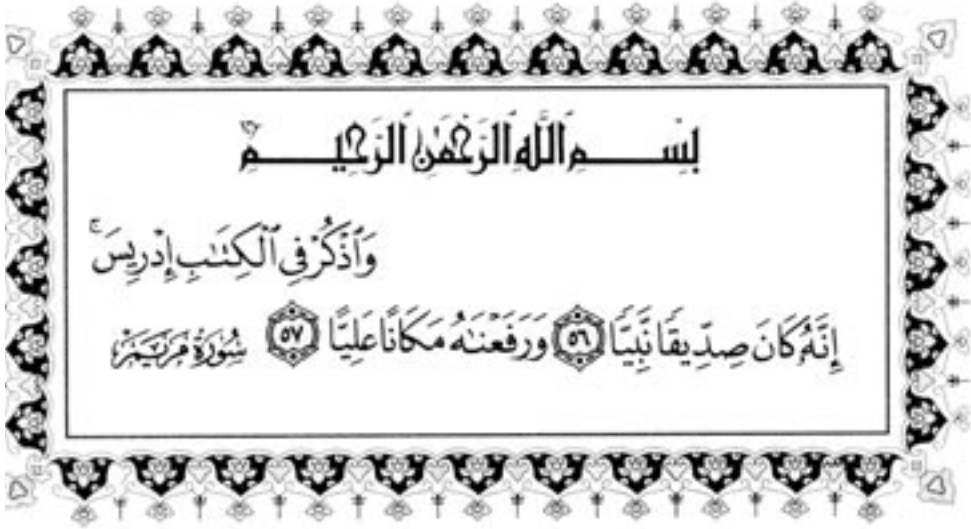 بِسْمِ ٱللَّهِ ٱلرَّحْمَٰنِ ٱلرَّحِيمِ
وَٱذْكُرْ فِى ٱلْكِتَٰبِ إِدْرِيسَ ۚ
إِنَّهُۥ كَانَ صِدِّيقًا نَّبِيًّا ٥٦ وَرَفَعْنَٰهُ مَكَانًا عَلِيًّا ٥٧ سُورَةُ مَرْيَم